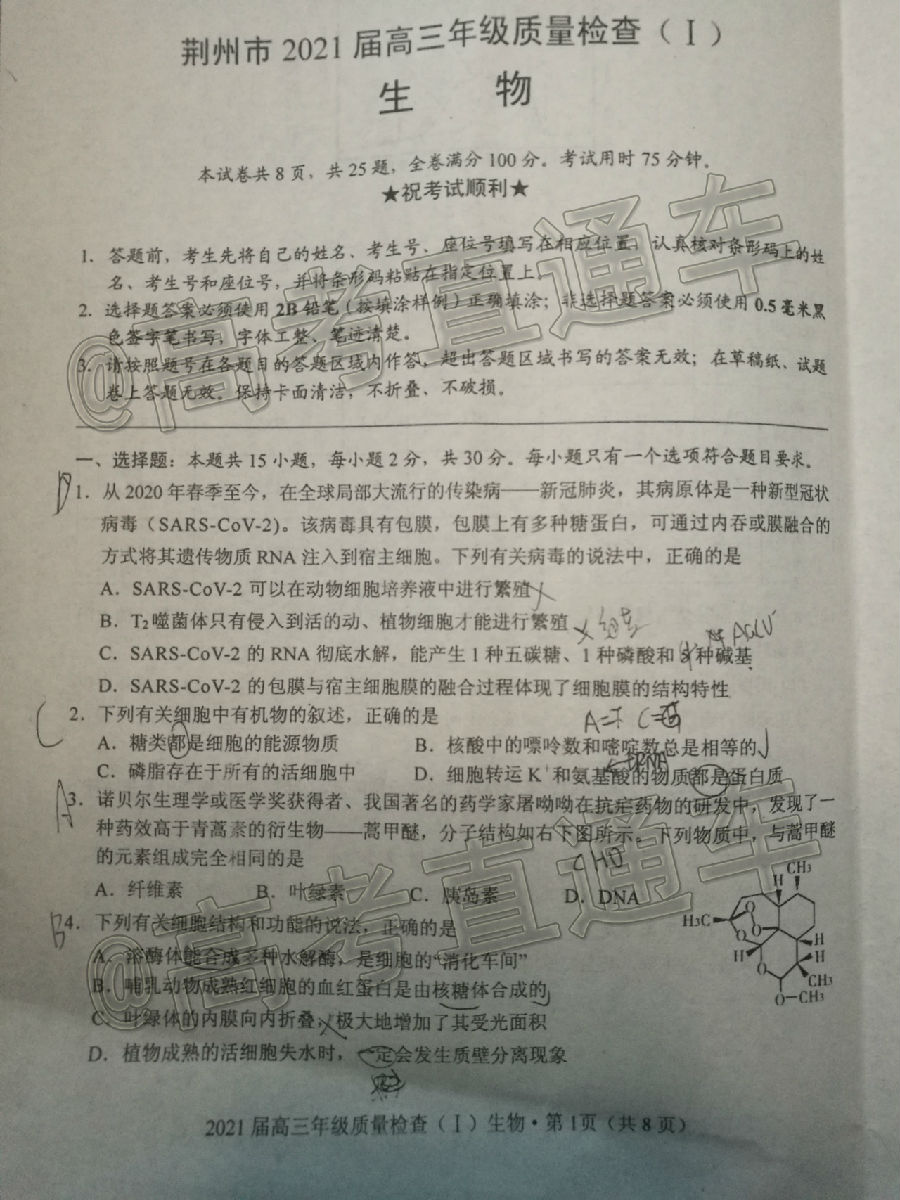 荆州市 2021 届高三年级质量检查（Ⅰ）
生 物
本试卷共 8 页，共 25 题，全卷满分 100 分。考试用时 75 分钟。
★祝考试顺利★
1. 答题前，考生先将自己的姓名、考生号、座位号填写在相应位置，认真核对条形码上的姓
名、考生号和座位号，并将条形码粘贴在指定位置上。
2. 选择题答案必须使用 2B 铅笔（按填涂样例）正确填涂；非选择题答案必须使用 0.5 毫米黑
色签字笔书写，字体工整、笔迹清楚。
3. 请按照题号在各题目的答题区域内作答，超出答题区域书写的答案无效；在草稿纸、试题
卷上答题无效。保持卡面清洁，不折叠、不破损。
@高考直通车
一、选择题：本题共 15 小题，每小题 2 分，共 30 分。每小题只有一个选项符合题目要求。
D 1. 从 2020 年春季至今，在全球局部大流行的传染病——新冠肺炎，其病原体是一种新型冠状
病毒（SARS-CoV-2）。该病毒具有包膜，包膜上有多种糖蛋白，可通过内吞或膜融合的
方式将其遗传物质 RNA 注入到宿主细胞。下列有关病毒的说法中，正确的是
A．SARS-CoV-2 可以在动物细胞培养液中进行繁殖
B．T₂噬菌体只有侵入到活的动、植物细胞才能进行繁殖
C．SARS-CoV-2 的 RNA 彻底水解，能产生 1 种五碳糖、1 种磷酸和 8 种碱基
D．SARS-CoV-2 的包膜与宿主细胞膜的融合过程体现了细胞膜的结构特性
C 2. 下列有关细胞中有机物的叙述，正确的是
A．糖类都是细胞的能源物质 B．核酸中的嘌呤数和嘧啶数总是相等的
C．磷脂存在于所有的活细胞中 D．细胞转运 K⁺和氨基酸的物质都是蛋白质
A 3. 诺贝尔生理学或医学奖获得者、我国著名的药学家屠呦呦在抗疟药物的研发中，发现了一
种药效高于青蒿素的衍生物——蒿甲醚，分子结构如右下图所示。下列物质中，与蒿甲醚
的元素组成完全相同的是
CHO
A．纤维素 B．叶绿素 C．胰岛素 D．DNA
CH₃
H
H₃C
O
O
O
H
H
H
O
CH₃
O—CH₃
B 4. 下列有关细胞结构和功能的说法，正确的是
A．溶酶体能合成多种水解酶，是细胞的“消化车间”
B．哺乳动物成熟红细胞的血红蛋白是由核糖体合成的
C．叶绿体的内膜向内折叠，极大地增加了其受光面积
D．植物成熟的活细胞失水时，一定会发生质壁分离现象
@高考直通车
2021 届高三年级质量检查（Ⅰ）生物·第 1 页（共 8 页）